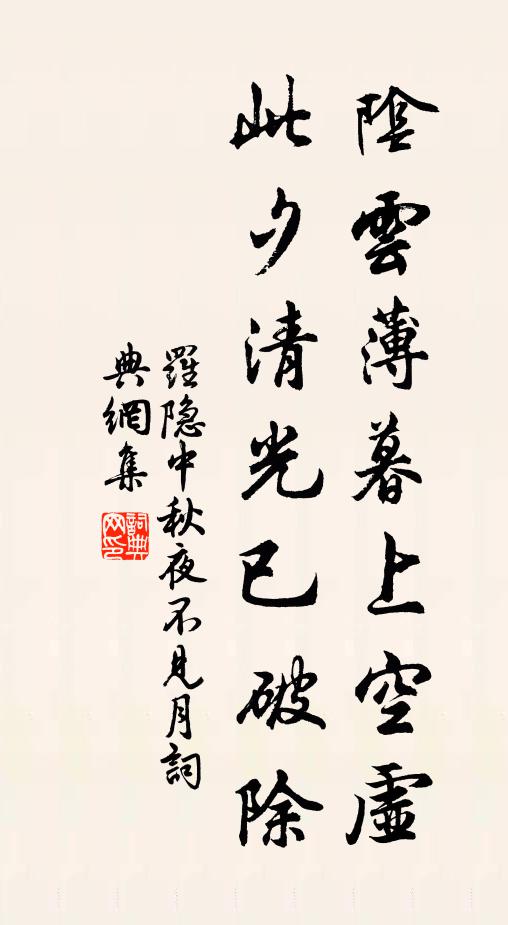 陰雲薄暮上空虛
此夕清光已破除
羅隐中秋夜不見月詞
典網集
詞典網印